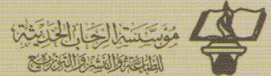 مؤسسة الرحاب الحديثة
للطباعة والنشر والتوزيع